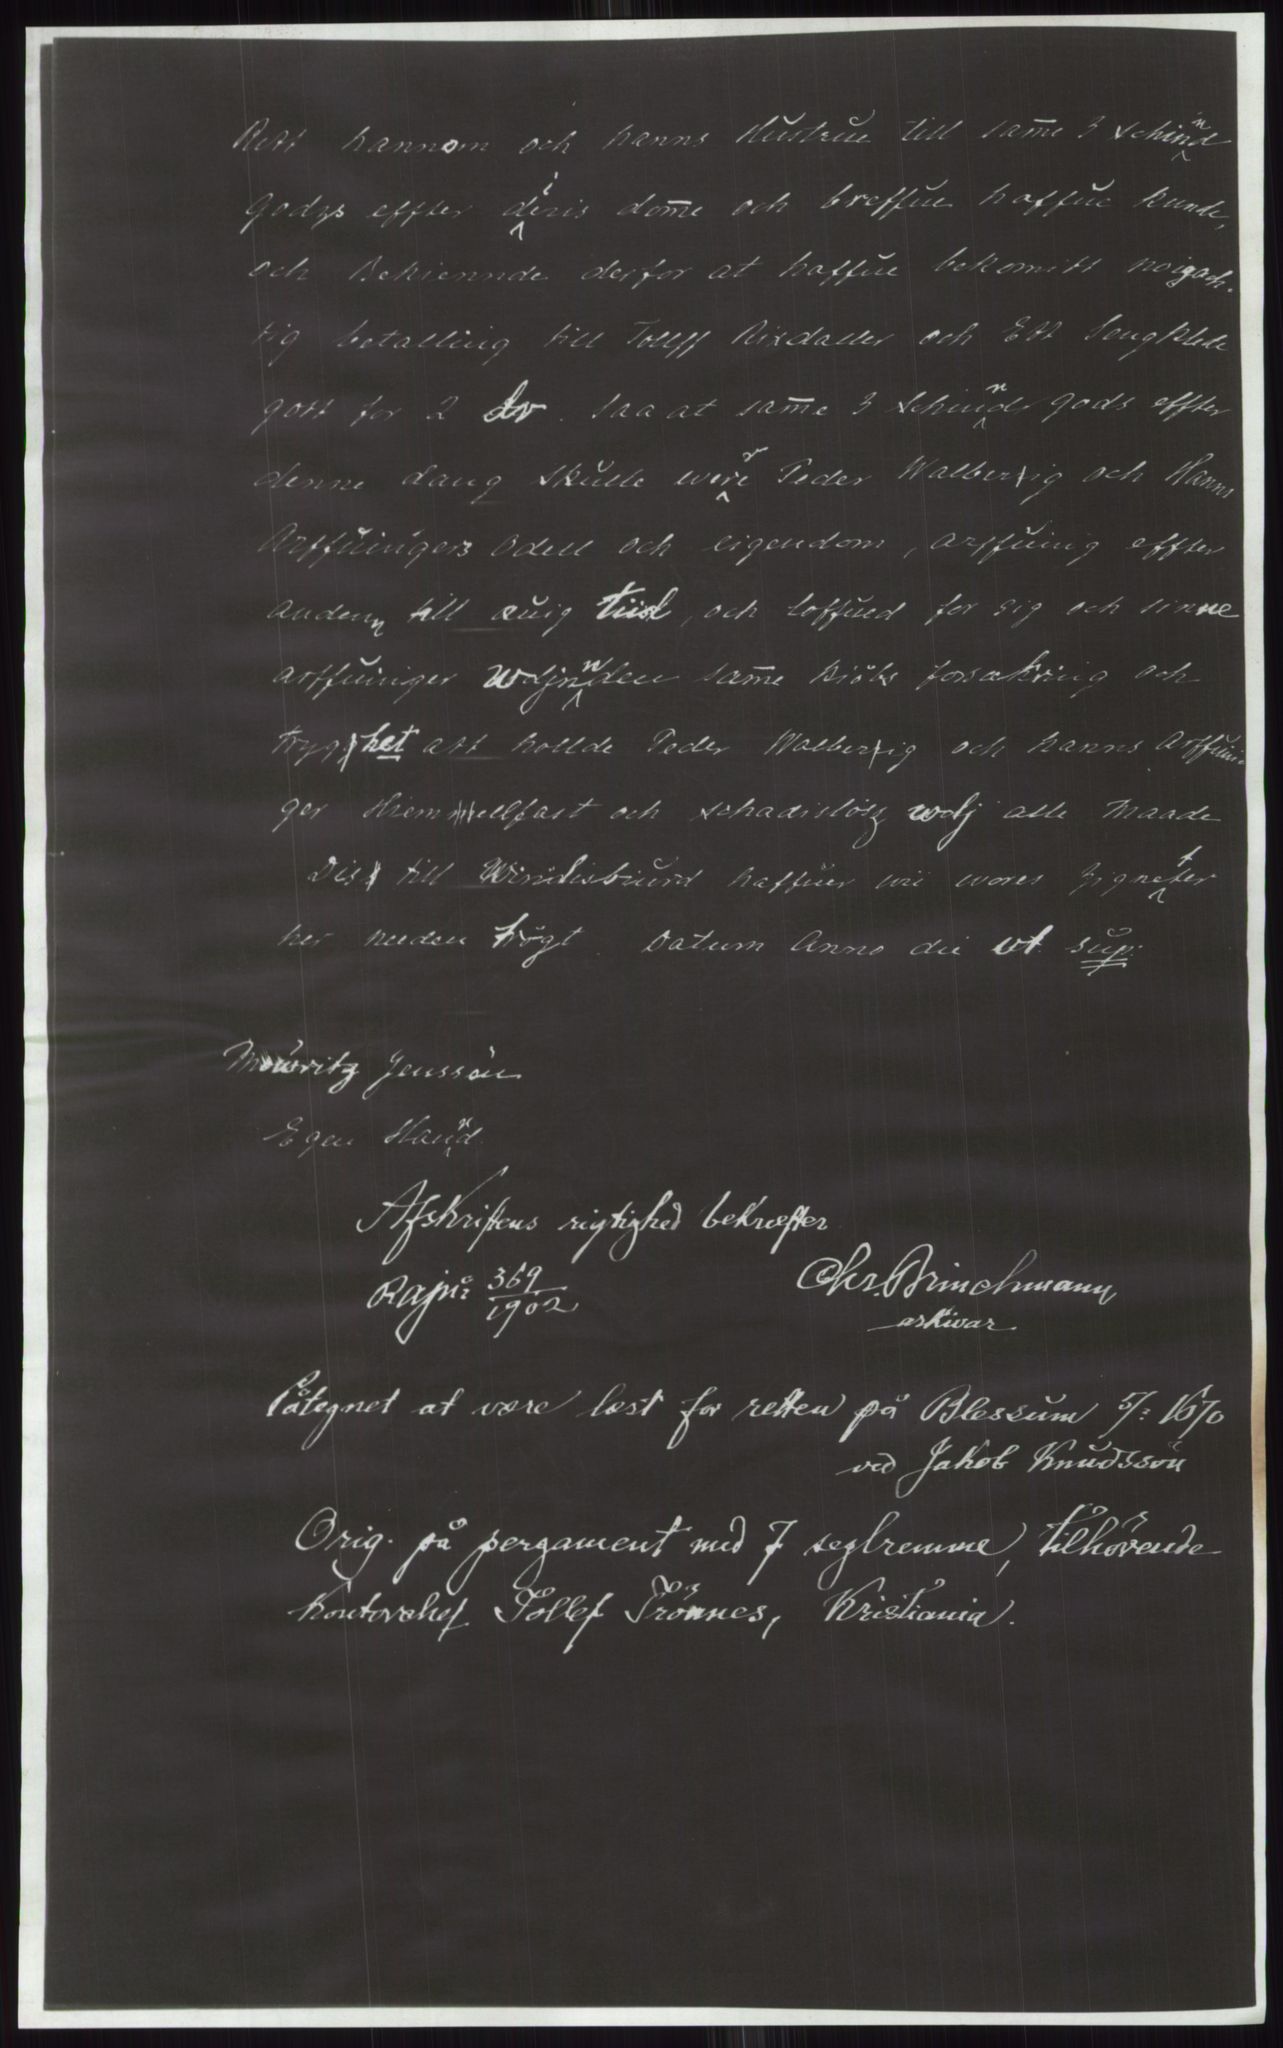 Rett hannom och hanns Hustrue till same 3 schinnd
godzs effter deris dome och breffue haffue kunde,
och Bekiennde derfor at haffue bekomitt noigach-
tig betalling till Tollff Rixdaller och Ett Sengklede
gott for 2 dr. saa at same 3 schinnds gods effter
denne daug skulle were Peder Walberig och Hanns
Arffuingers Odell och eigendom, arffuing effter
andenn till euig tiid, och loffued for sig och sinne
arffuinger wdjnnden same kiöbs forsekring och
tryghet att hollde Peder Walberig och hanns Arffuin-
ger Hiemellfast och schadislösz wdj alle maade
Dis till Windisbiurd haffuer wii wores Zigneter
her neden trögt. Datum Anno die ut sup:
Mouritz Jenssön
Egen Hannd.
Afskriftens rigtighed bekræfter
Rajnr 369/1902
Chr. Brinchmann
arkivar
Påtegnet at være læst for retten på Blessum 5/7 1670
ved Jakob Knudssön
Orig. på pergament med 7 seglremme, tilhörende
kontorchef Tollef Trönnes, Kristiania.